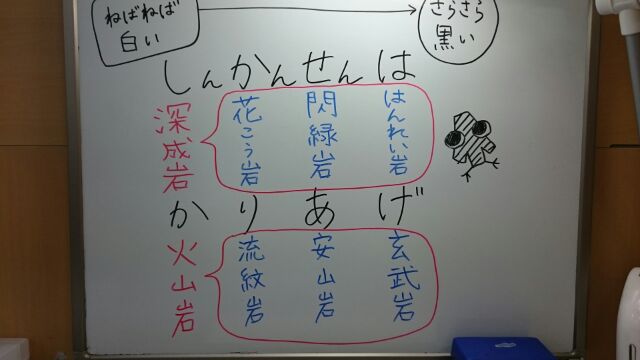 ねばねば
白い
さらさら
黒い
しんかんせんは
深成岩
花こう岩
閃緑岩
はんれい岩
かりあげ
火山岩
流紋岩
安山岩
玄武岩